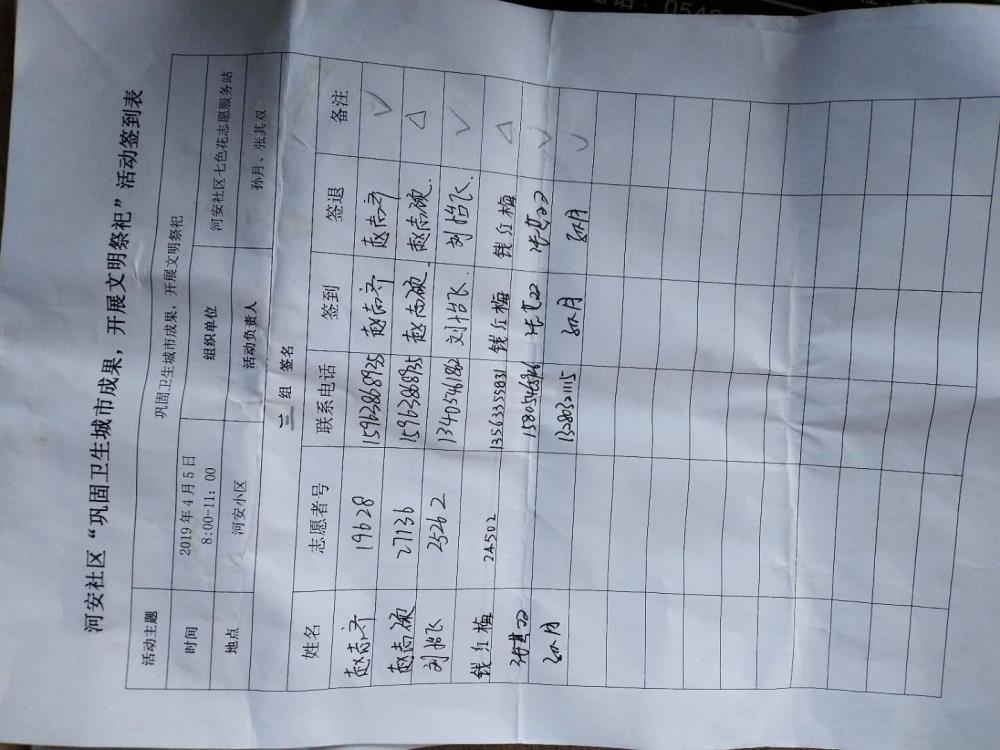 河安社区“巩固卫生城市成果，开展文明祭祀”活动签到表
活动主题 巩固卫生城市成果，开展文明祭祀
时间 2019年4月5日 8:00-11:00 组织单位 河安社区七色花志愿服务站
地点 河安小区 活动负责人 孙月、张其双
三 组 签名
姓名 志愿者号 联系电话 签到 签退 备注
赵志齐 19628 15963868935 赵志齐 赵志齐 √
赵志硕 27136 15963868935 赵志硕. 赵志硕. △
刘怡飞 25262 13405461862 刘怡飞. 刘怡飞. √
钱红梅 24502 13563355831 钱红梅 钱红梅 △
张其双 张其双 张其双 √
孙月 13280321115 孙月 孙月 √